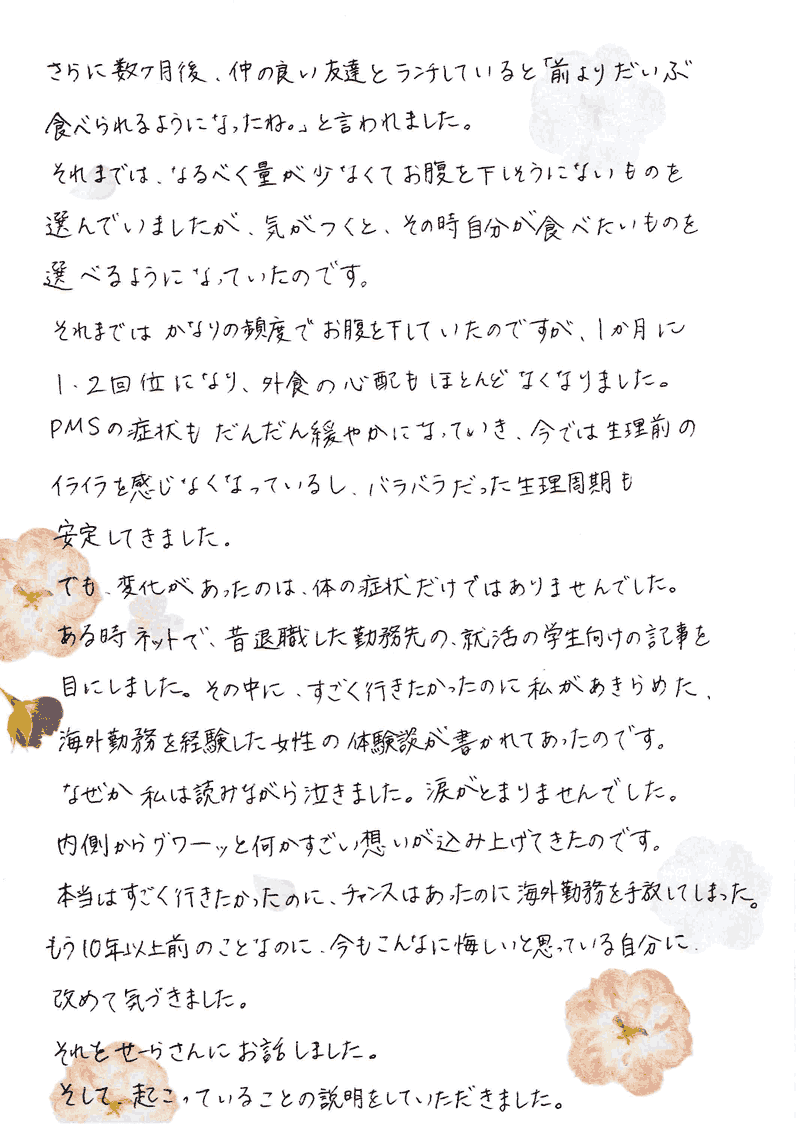 さらに数ヶ月後、仲の良い友達とランチしていると「前よりだいぶ
食べられるようになったね。」と言われました。
それまでは、なるべく量が少なくてお腹を下しそうにないものを
選んでいましたが、気がつくと、その時自分が食べたいものを
選べるようになっていたのです。
それまではかなりの頻度でお腹を下していたのですが、1か月に
1・2回位になり、外食の心配もほとんどなくなりました。
PMSの症状もだんだん緩やかになっていき、今では生理前の
イライラを感じなくなっているし、バラバラだった生理周期も
安定してきました。
でも、変化があったのは、体の症状だけではありませんでした。
ある時ネットで、昔退職した勤務先の、就活の学生向けの記事を
目にしました。その中に、すごく行きたかったのに私があきらめた、
海外勤務を経験した女性の体験談が書かれてあったのです。
なぜか私は読みながら泣きました。涙がとまりませんでした。
内側からグワーッと何かすごい想いが込み上げてきたのです。
本当はすごく行きたかったのに、チャンスはあったのに海外勤務を手放してしまった。
もう10年以上前のことなのに、今もこんなに悔しいと思っている自分に、
改めて気づきました。
それをせーらさんにお話しました。
そして、起こっていることの説明をしていただきました。